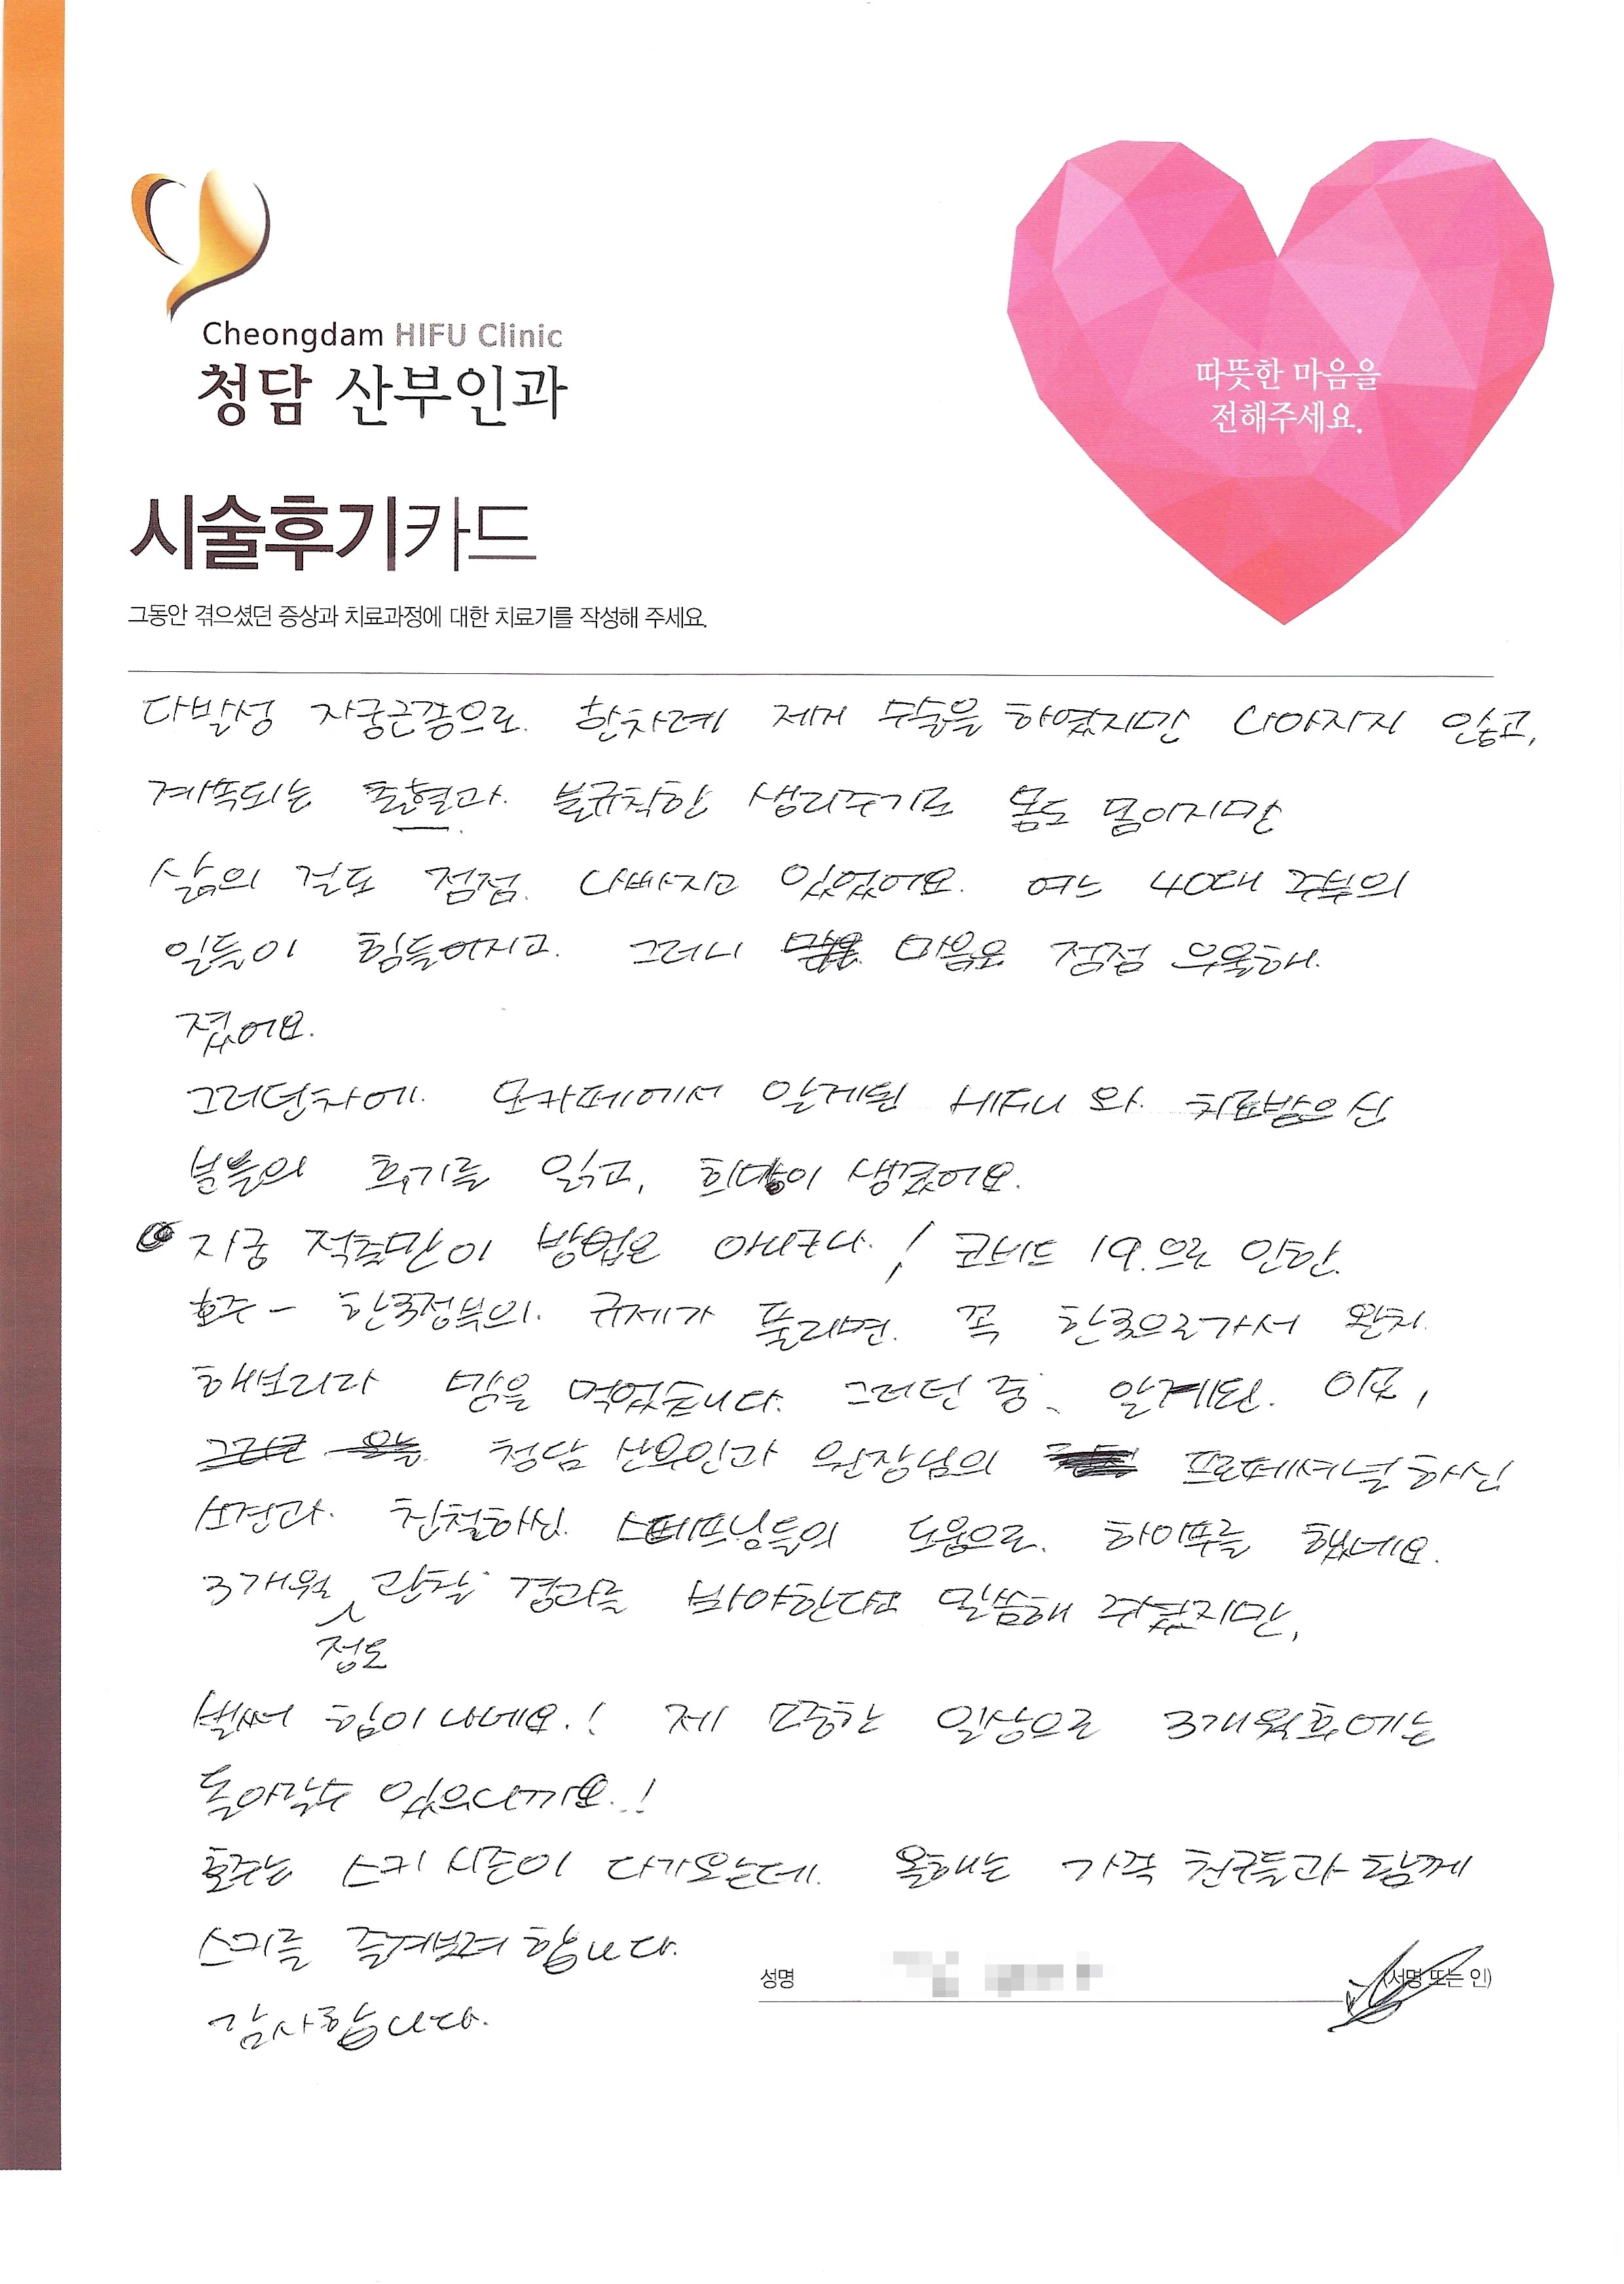 Cheongdam HIFU Clinic
청담 산부인과
따뜻한 마음을
전해주세요.
시술후기카드
그동안 겪으셨던 증상과 치료과정에 대한 치료기를 작성해 주세요.
다발성 자궁근종으로. 한차례 제거 수술을 하였지만 나아지지 않고,
계속되는 출혈과. 불규칙한 생리주기로 몸도 몸이지만
삶의 질도 점점. 나빠지고 있었어요. 여느 40대 주부의
일들이 힘들어지고. 그러니 마음도 점점 우울해.
졌어요.
그러던차에. 모카페에서 알게된 HIFU 와. 치료받으신
분들의 후기를 읽고, 희망이 생겼어요.
자궁 적출만이 방법은 아니구나.! 코비드 19.으로 인한.
호주 - 한국정부의. 규제가 풀리면. 꼭 한국으로가서 완치.
해보리라 맘을 먹었습니다. 그러던 중, 알게된. 이곳,
청담 산부인과 원장님의 프로페셔널하신
소견과. 친절하신. 스테프님들의 도움으로. 하이푸를 했네요.
3개월 정도 관찰 경과를 봐야한다고 말씀해 주셨지만,
벌써 힘이 나네요.! 제 소중한 일상으로 3개월후에는
돌아갈수 있으니까요.!
호주는 스키 시즌이 다가오는데. 올해는 가족 친구들과 함께
스키를 즐겨보려 합니다.
감사합니다.
성명 (서명 또는 인)